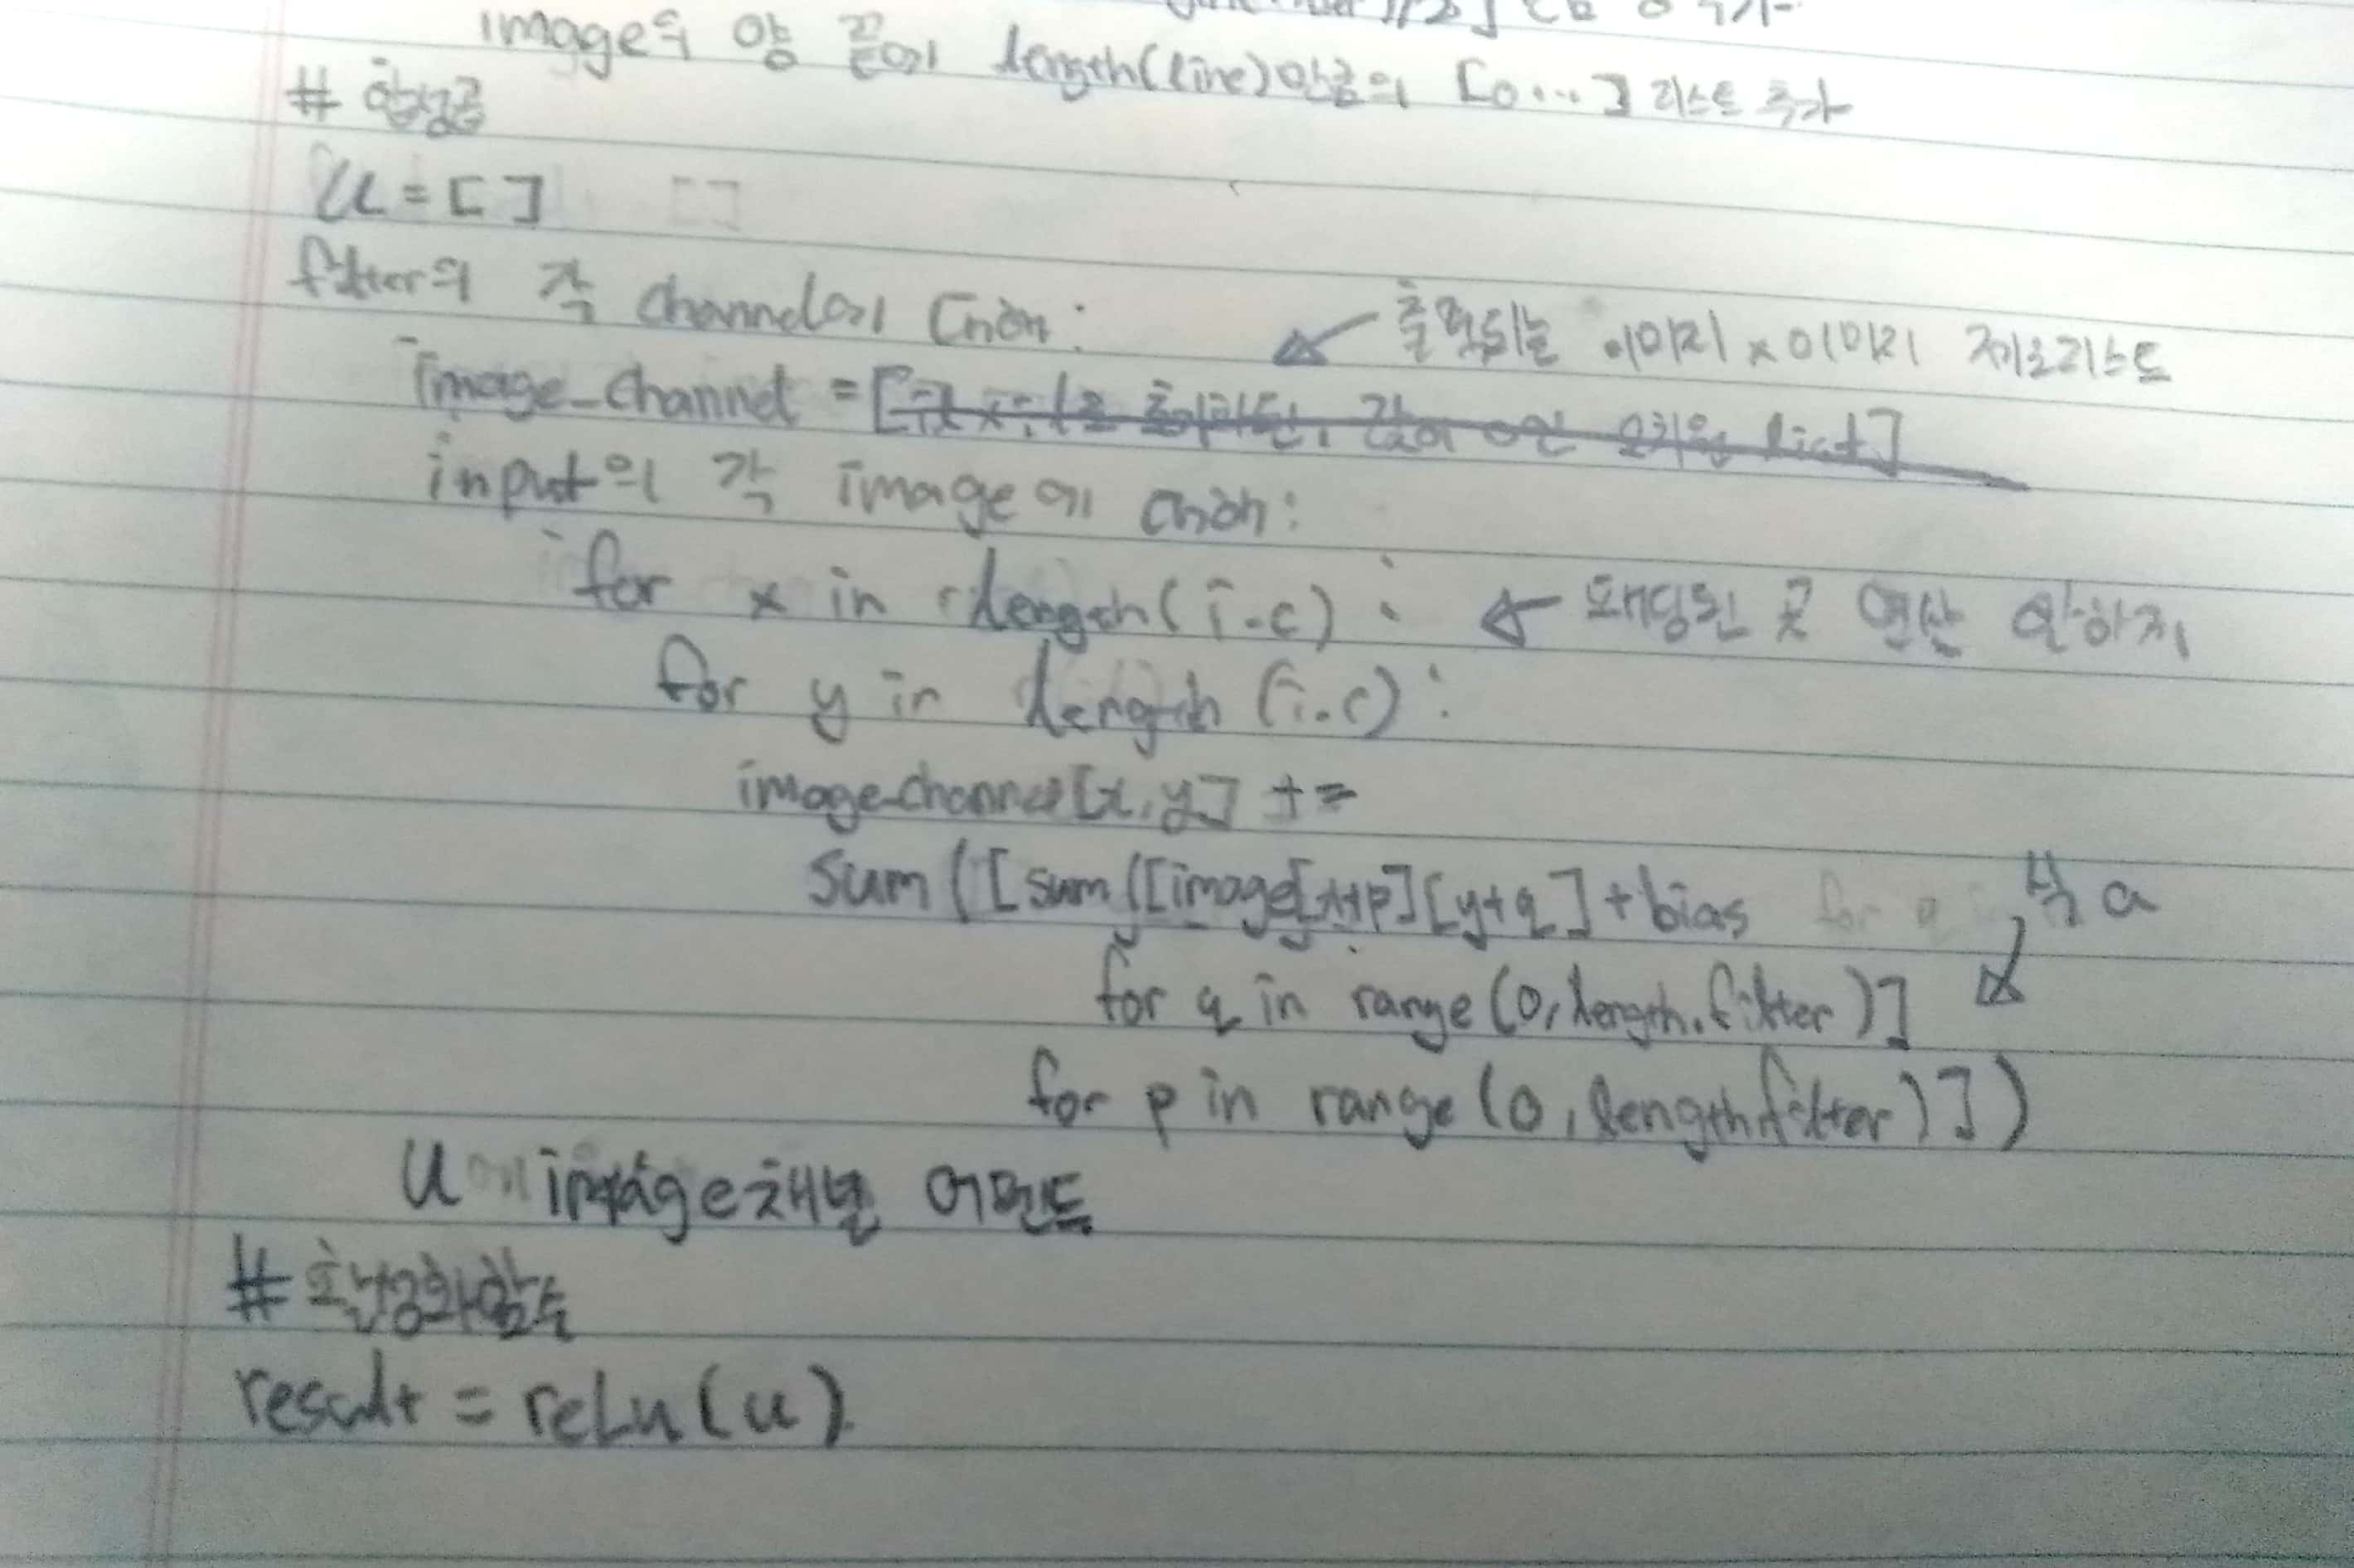 image의 양 끝에 length(line)만큼의 [0...] 리스트 추가
# 합성곱
u = [ ]
filter의 각 channel에 대해:
출력되는 이미지 x 이미지 제로리스트
image_channel = [
input의 각 image에 대해:
for x in length(i-c) : ← 패딩된 곳 연산 안하게
for y in length(i-c) :
image-channel[x, y] +=
sum([sum([image[x+p][y+q]+bias
for q in range(0, length.filter)]
for p in range(0, length.filter)])
u에 image채널 어펜드
# 활성화함수
result = reLu(u)